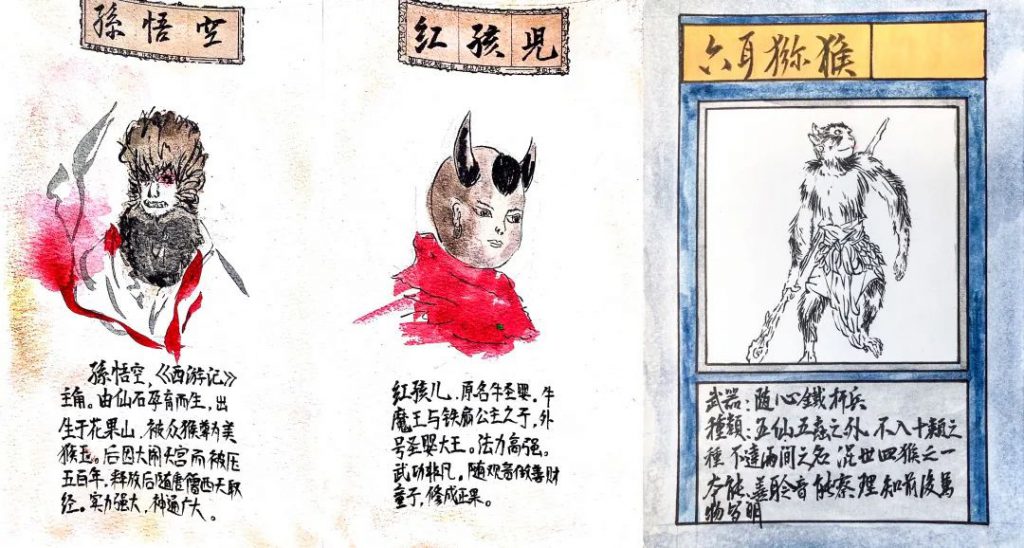 孫悟空
孫悟空,《西游记》
主角。由仙石孕育而生,出
生于花果山,被众猴尊为美
猴王。后因大闹天宫而被压
五百年,释放后随唐僧西天取
经。实力强大,神通广大。
红孩兒
红孩儿,原名牛圣婴。牛
魔王与铁扇公主之子,外
号圣婴大王。法力高强。
武功非凡。随观音做善财
童子,修成正果。
六耳猕猴
武器:随心鐵杆兵
種類:五仙五虫之外 不入十類之
種 不達兩間之名 混世四猴之一
本能:善聆音 能察理 知前後 萬
物皆明